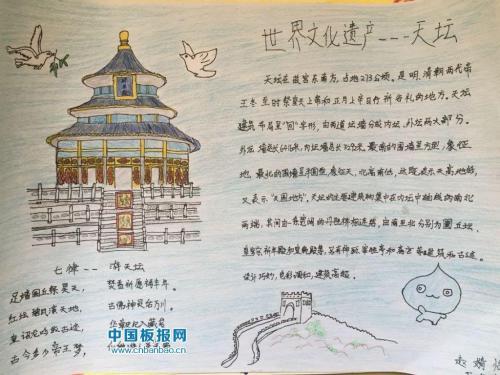 世界文化遗产---天坛
天坛在故宫东南方,占地273公顷。是明、清朝两代帝
王冬至时祭皇天上帝和正月上辛日行祈谷礼的地方。天坛
建筑布局呈"回"字形,由两道坛墙分成内坛、外坛两大部分。
外坛墙总长6416米,内坛墙总长
最南的围墙呈方形,象征
地,最北的围墙呈半圆型,象征天,北高南低,这既表示天高地低,
又表示"天圆地方"。天坛的主要建筑物集中在内坛中轴线的南北
两端,其间由一条宽阔的丹陛桥相连结,由南至北分别为圜丘坛、
皇穹宇、祈年殿和皇乾殿等,另有神厨、宰牲亭和斋宫等建筑和古迹。
设计巧妙,色彩调和,建筑高超。
七律--游天坛
足墙圜丘
红坛
古今多少帝王梦,
古佛神灵佑万川。
中国板报网
www.cnbanbao.cn
赵婧